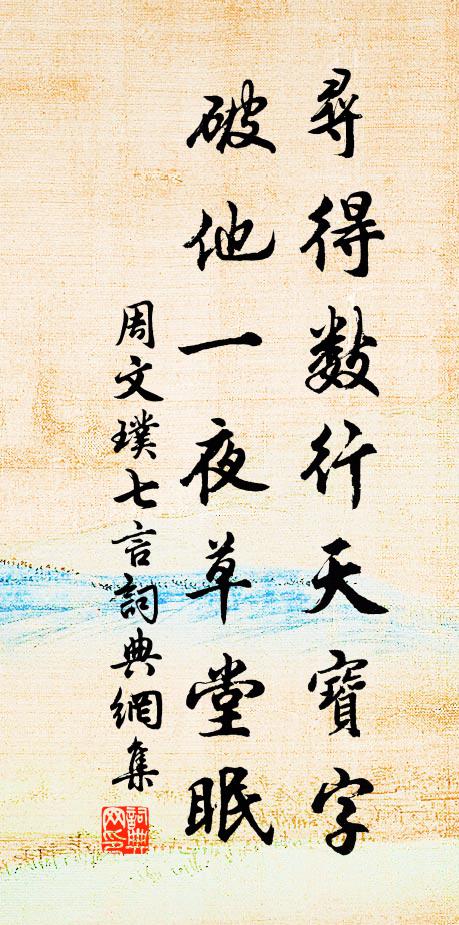 尋得數行天寶字
破他一夜草堂眠
周文璞七言詞典網集
詞典網印